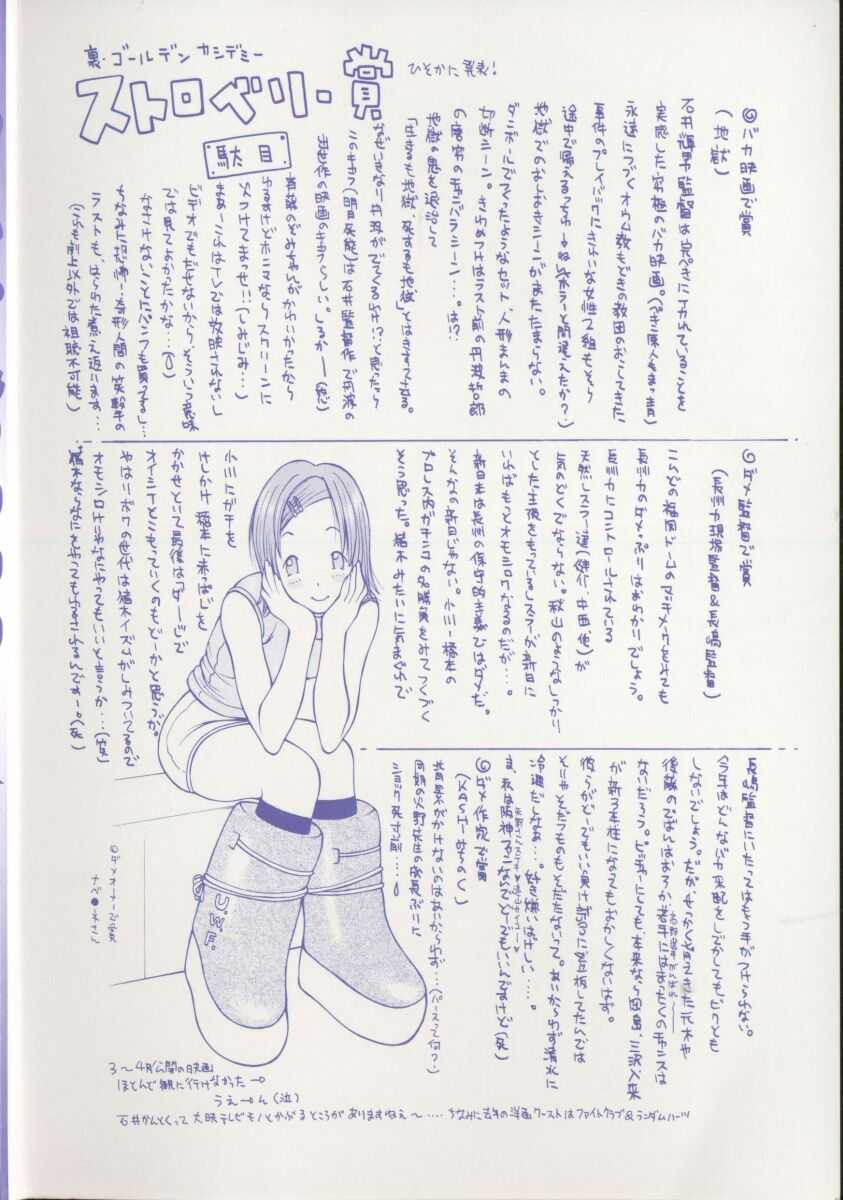 裏・ゴールデン カシデミー
ストロベリー・賞
ひそかに発表!
駄目
◎バカ映画で賞
(地獄)
石井輝男監督は完ぺきにイカれていることを
実感した究極のバカ映画。
永遠につづくオウム教もどきの教団のおこしてきた
事件のプレイバックにきれいな女性2組もそろ
途中で帰えるっちゅー
地獄でのおしおきシーンがまたたまらない。
ダンボールでつくったようなセット、人形まるまの
切断シーン。きわめつけはラスト前の丹波哲郎
の唐突のチャンバラシーン…。は!?
地獄の鬼を退治して
「生きるも地獄、死するも地獄」とはきすてる。
なぜいきなり丹波がでてくるんけ!?と思ったら
このキャラ(明日死能)は石井監督作で丹波の
主役の映画のキャラらしい。しるかー(怒)
ゆるすけどホンマならスクリーンに
火つけてまっせ!!(しみじみ…)
まあーこれはTVでは放映されないし
ビデオでもだせないからそういう意味
では見てよかったかな…
なさけないことにパンフも買ってるし…
ちなみに恐怖!奇形人間の笑撃の
ラストも、はらわた煮え返ります…
(これも劇上以外では視聴不可能)
◎ダメ監督で賞
(長州力現場監督&長嶋監督)
こんどの福岡ドームのマッチメークをみても
長州力のダメっぷりはわかりでしょう。
長州力にコントロールされている
天然レスラー達(健介、中西他)が
気のどくでならない。秋山のようなしっかり
とした主張をもっているレスラーが新日に
いればもっとオモシロくなるのだが…。
新日本は長州の保守的主義ではダメだ。
そんなの新日じゃない。小川-橋本の
プロレス大賞が
そう思った。猪木みたいに気まぐれで
小川にガチを
けしかけ橋本に赤っぱじを
かかせといて最後はコザージで
オイシイとこもっていくのもどーかと思うが。
やはりボクの世代は猪木イズムがしみついてるので
オモシロけりゃなにやってもいいと言うか…(笑)
猪木ならなにをやってもゆるされるんですよー。(死)
長嶋監督にいたってはもう手がつけられない。
今年はどんなバカ采配をしでかしてもビクとも
しないでしょう。だがせっかく育ってきた元木や
後藤のでばんはおろか若手にはまったくのチャンスは
ないだろう。ピッチャーにしても、本来なら岡島、三沢、入来
が新3本柱になってもおかしくないはず。
彼らがどーでもいい負け試合に登板してたんでは
そりゃそだつものもそだたないって。あいかわらず清水に
冷遇だしなぁ…。好き嫌いはげしい…。
ま、私は阪神ファンなんでどーでもいいんですけど(死)
◎ダメ作家で賞
(KASHIみちのく)
背景がかけないのはあいかわらず…(パースって何?)
同期の火野先生の成長ぶりに
ショック死寸前…
U.W.F.
◎ダメオーナーで賞
ナベ●ネさん
3〜4月公開の日映画
ほとんど観に行けなかった→
うえーん(泣)
石井かんとくって大映テレビモノとかぶるところがありますねえ〜…. ちなみに去年の洋画ワーストはファイトクラブ&ランダムハーツ